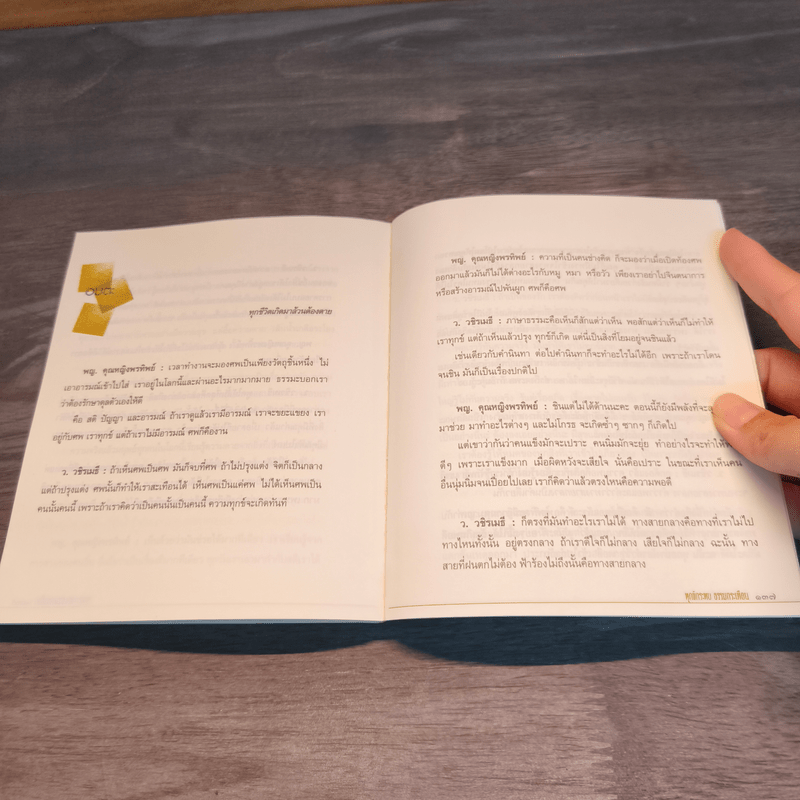 อมตะ
ทุกชีวิตเกิดมาล้วนต้องตาย
พญ. คุณหญิงพรทิพย์ : เวลาทำงานจะมองศพเป็นเพียงวัตถุชิ้นหนึ่ง ไม่
เอาอารมณ์เข้าไปใส่ เราอยู่ในโลกนี้และผ่านอะไรมากมากมาย ธรรมะบอกเรา
ว่าต้องรักษาดุลตัวเองให้ดี
คือ สติ ปัญญา และอารมณ์ ถ้าเราดูแล้วเรามีอารมณ์ เราจะขยะแขยง เรา
อยู่กับศพ เราทุกข์ แต่ถ้าเราไม่มีอารมณ์ ศพก็คืองาน
ว. วชิรเมธี : ถ้าเห็นศพเป็นศพ มันก็จบที่ศพ ถ้าไม่ปรุงแต่ง จิตก็เป็นกลาง
แต่ถ้าปรุงแต่ง ศพนั้นก็ทำให้เราสะเทือนได้ เห็นศพเป็นแค่ศพ ไม่ได้เห็นศพเป็น
คนนั้นคนนี้ เพราะถ้าเราคิดว่าเป็นคนนั้นเป็นคนนี้ ความทุกข์จะเกิดทันที
พญ. คุณหญิงพรทิพย์ : ความที่เป็นคนช่างคิด ก็จะมองว่าเมื่อเปิดท้องศพ
ออกมาแล้วมันก็ไม่ได้ต่างอะไรกับหมู หมา หรือวัว เพียงเราอย่าไปจินตนาการ
หรือสร้างอารมณ์ไปพันผูก ศพก็คือศพ
ว. วชิรเมธี : ภาษาธรรมะคือเห็นก็สักแต่ว่าเห็น พอสักแต่ว่าเห็นก็ไม่ทำให้
เราทุกข์ แต่ถ้าเห็นแล้วปรุง ทุกข์ก็เกิด แต่นี่เป็นสิ่งที่โยมอยู่จนชินแล้ว
เช่นเดียวกับคำนินทา ต่อไปคำนินทาก็จะทำอะไรไม่ได้อีก เพราะถ้าเราโดน
จนชิน มันก็เป็นเรื่องปกติไป
พญ. คุณหญิงพรทิพย์ : ชินแต่ไม่ได้ด้านนะคะ ตอนนี้ก็ยังมีพลังที่จะลุ
มาช่วย มาทำอะไรต่างๆ และไม่โกรธ จะเกิดซ้ำๆ ซากๆ ก็เกิดไป
แต่เขาว่ากันว่าคนแข็งมักจะเปราะ คนนิ่มมักจะยุ่ย ทำอย่างไรจะทำให้
ดีๆ เพราะเราแข็งมาก เมื่อผิดหวังจะเสียใจ นั่นคือเปราะ ในขณะที่เราเห็นคน
อื่นนุ่มนิ่มจนเปื่อยไปเลย เราก็คิดว่าแล้วตรงไหนคือความพอดี
ว. วชิรเมธี : ก็ตรงที่มันทำอะไรเราไม่ได้ ทางสายกลางคือทางที่เราไม่ไป
ทางไหนทั้งนั้น อยู่ตรงกลาง ถ้าเราดีใจก็ไม่กลาง เสียใจก็ไม่กลาง ฉะนั้น ทาง
สายที่ฝนตกไม่ต้อง ฟ้าร้องไม่ถึงนั้นคือทางสายกลาง
ทุกข์กระทบ ธรรมกระเทือน ๑๓๗